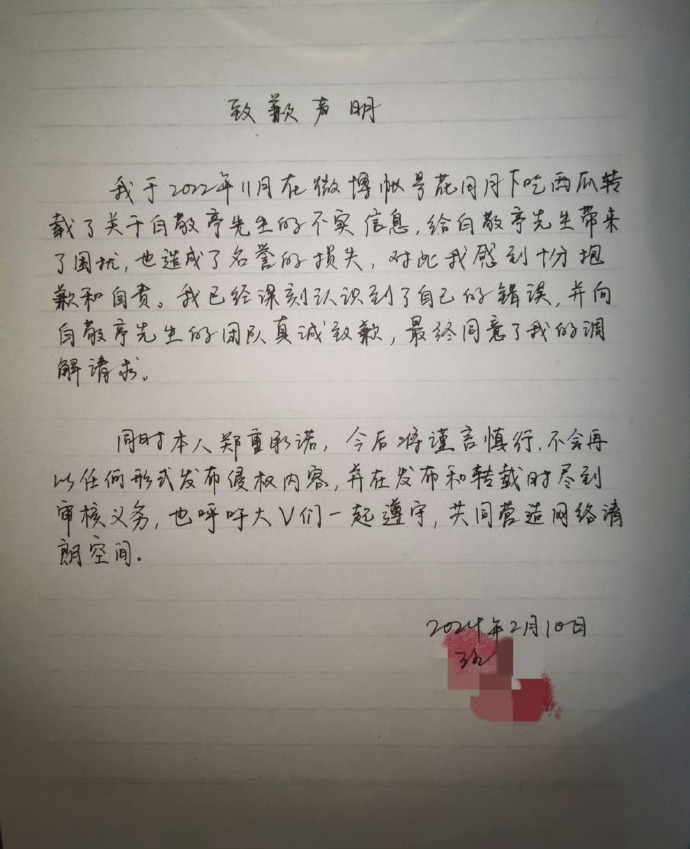 致歉声明
我于2022年11月在微博帐号花间月下吃西瓜转
载了关于白敬亭先生的不实信息，给白敬亭先生带来
了困扰，也造成了名誉的损失，对此我感到十分抱
歉和自责。我已经深刻认识到了自己的错误，并向
白敬亭先生的团队真诚致歉，最终同意了我的调
解请求。
同时本人郑重承诺，今后将谨言慎行，不会再
以任何形式发布侵权内容，并在发布和转载时尽到
审核义务，也呼吁大V们一起遵守，共同营造网络清
朗空间.
2024年2月10日